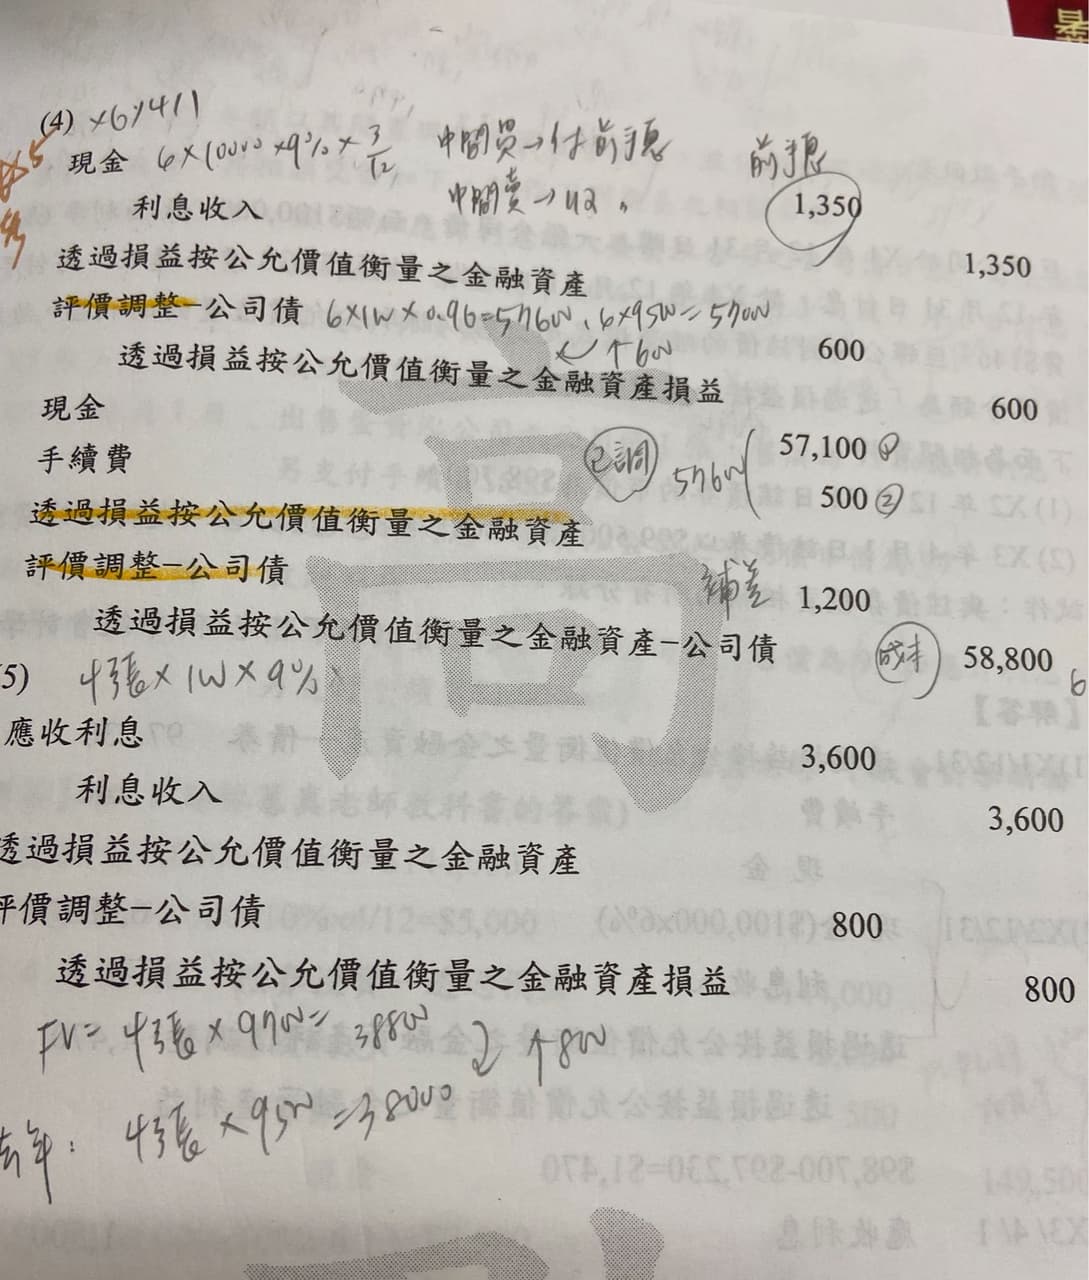 (4) X6/4/1
現金 6×10000×9%×3/12 中間買→付前手息 前手息
利息收入 中間賣→收 。 1,350
透過損益按公允價值衡量之金融資產 1,350
評價調整-公司債 6×1W×0.96=57600、6×9500=57000
↑600 600
透過損益按公允價值衡量之金融資產損益 600
現金 57,100 ①
手續費 已調 57600 500 ②
透過損益按公允價值衡量之金融資產
評價調整-公司債 補差 1,200
透過損益按公允價值衡量之金融資產-公司債 成本 58,800
5) 4張×1W×9%×
應收利息 3,600
利息收入 3,600
透過損益按公允價值衡量之金融資產
評價調整-公司債 800
透過損益按公允價值衡量之金融資產損益 800
FV= 4張×9700= 38800 ↑800
去年: 4張×9500=38000